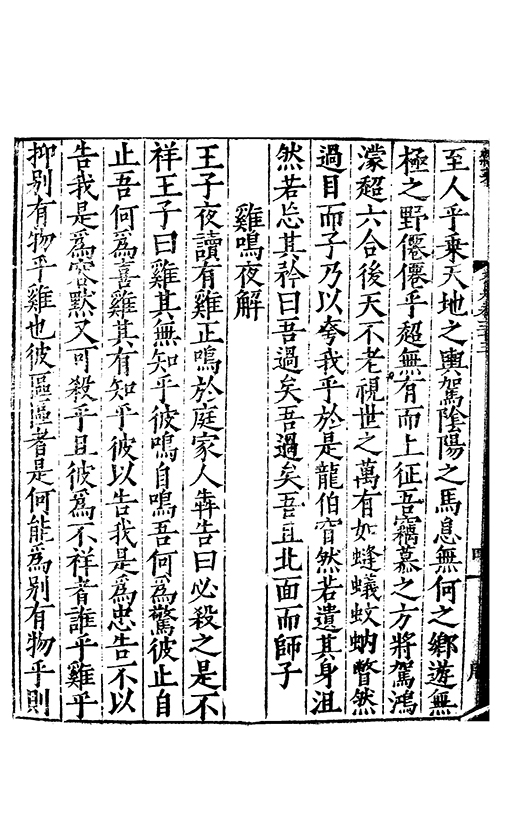 至人乎乘天地之輿駕陰陽之馬息無何之鄉遊無
極之野僊僊乎超無有而上征吾竊慕之方將駕鴻
濛超六合後天不老視世之萬有如蜂蟻蚊蚋瞥然
過目而子乃以夸我乎於是龍伯窅然若遺其身沮
然若忘其矜曰吾過矣吾過矣吾且北面而師子
雞鳴夜解
王子夜讀有雞正鳴於庭家人犇告曰必殺之是不
祥王子曰雞其無知乎彼鳴自鳴吾何爲驚彼止自
止吾何爲喜雞其有知乎彼以告我是爲忠告不以
告我是爲容默又可殺乎且彼爲不祥者誰乎雞乎
抑别有物乎雞也彼區區者是何能爲别有物乎則